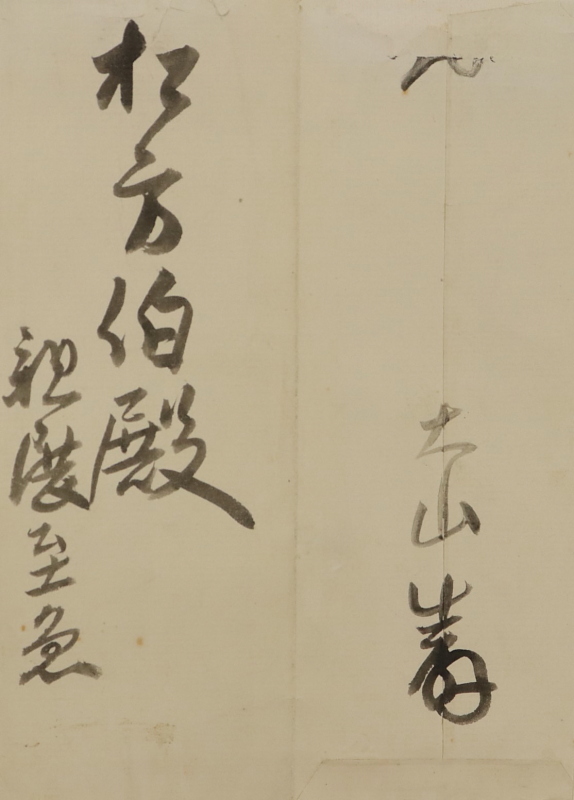 大山巌
松方伯殿
親展至急